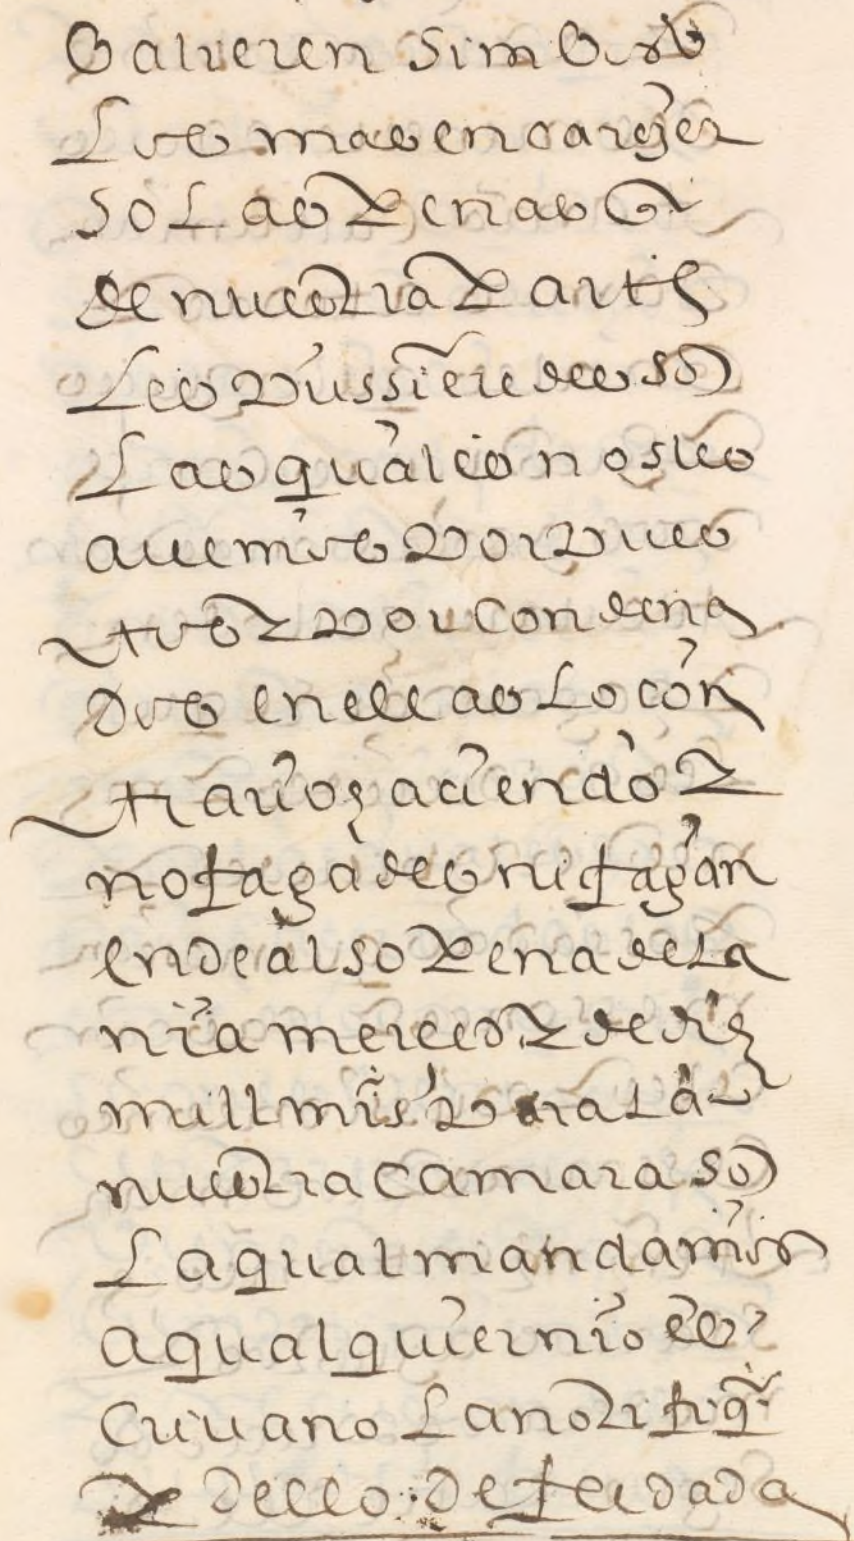 salieren sin ser
los mas encargar
so las penas q̃
de nuestra parte
les pussieredes so
las quales nos les
auemos por pues
tos y por condena
dos en ellas lo con
trario haciendo y
no fagades ni fagan
ende al so pena de la
nr̃a merced y de diez
mill mr̃s para la
nuestra camara so
la qual mandamos
a qualquier nr̃o es
criuano la notifiq̃
y dello de fee dada